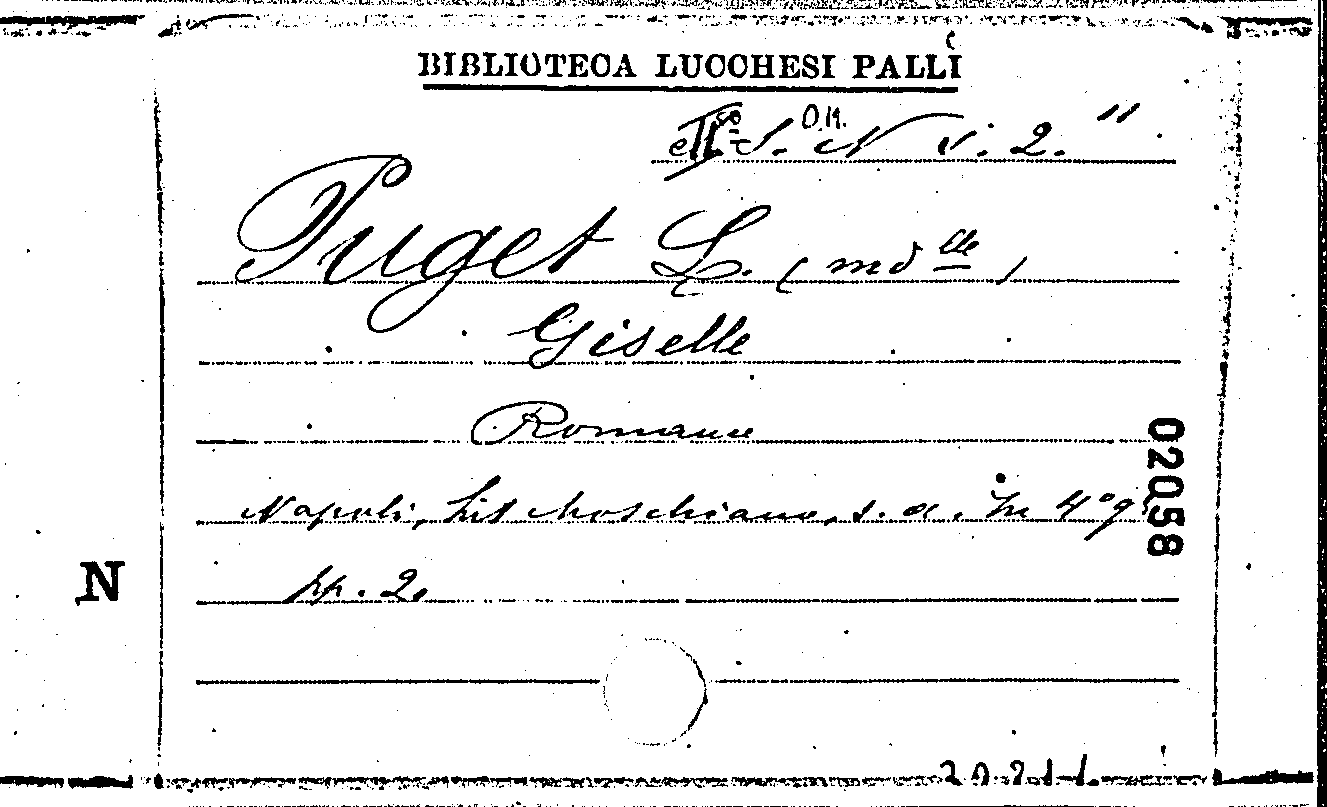 BIBLIOTECA LUCCHESI PALLI
O.M.
S. N V. 2. "
Puget L. (md lle)
Giselle
Romance
Napoli, Lit Moschiano, s. a. In 4° g
pp. 2.
N
02058